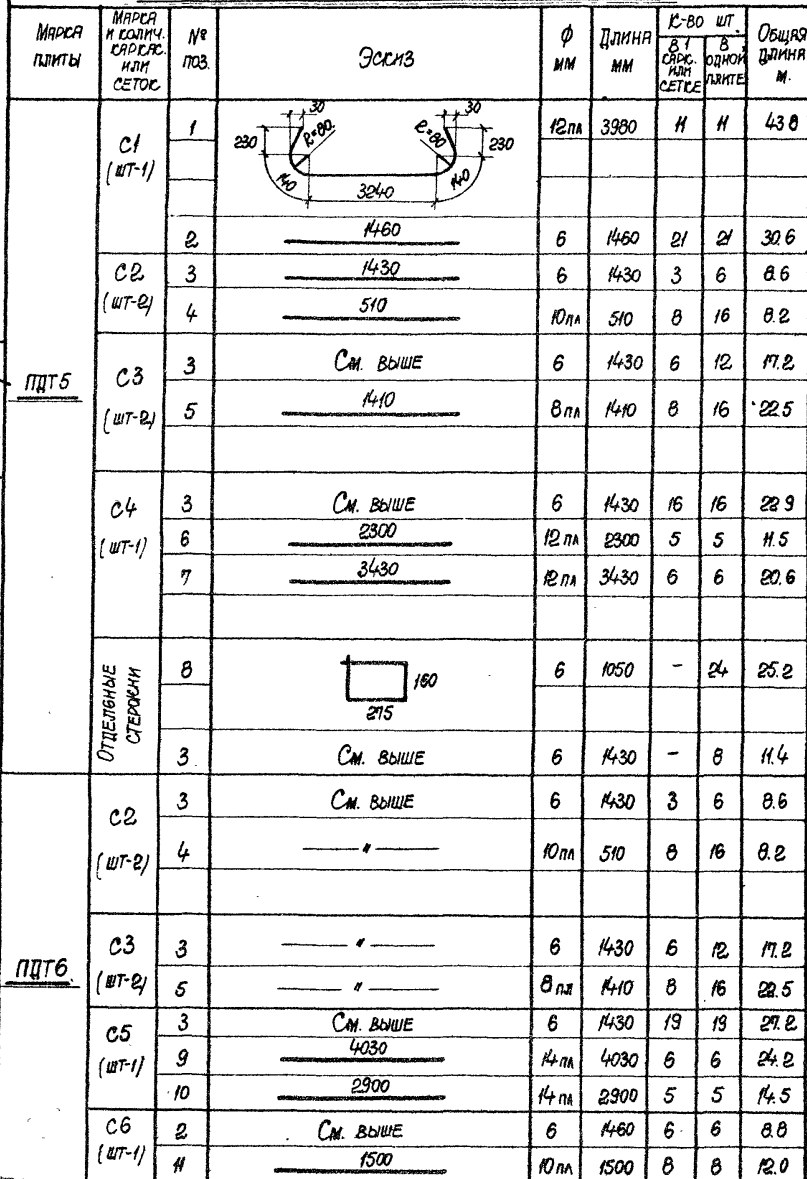 МАРКА ПЛИТЫ | МАРКА И КОЛИЧ. КАРКАС. ИЛИ СЕТОК | № ПОЗ. | ЭСКИЗ | ϕ ММ | ДЛИНА ММ | К-ВО ШТ. В 1 КАРК. ИЛИ СЕТКЕ | К-ВО ШТ. В ОДНОЙ ПЛИТЕ | ОБЩАЯ ДЛИНА М.
ПДТ5 | С1 (ШТ-1) | 1 | 30 30 230 R=80 R=80 230 140 3240 140 | 12ПЛ | 3980 | 11 | 11 | 43 8
2 | 1460 | 6 | 1460 | 21 | 21 | 30.6
С2 (ШТ-2) | 3 | 1430 | 6 | 1430 | 3 | 6 | 8.6
4 | 510 | 10ПЛ | 510 | 8 | 16 | 8.2
С3 (ШТ-2) | 3 | СМ. ВЫШЕ | 6 | 1430 | 6 | 12 | 17.2
5 | 1410 | 8ПЛ | 1410 | 8 | 16 | 22.5
С4 (ШТ-1) | 3 | СМ. ВЫШЕ | 6 | 1430 | 16 | 16 | 22 9
6 | 2300 | 12ПЛ | 2300 | 5 | 5 | 11.5
7 | 3430 | 12ПЛ | 3430 | 6 | 6 | 20.6
ОТДЕЛЬНЫЕ СТЕРЖНИ | 8 | 160 275 | 6 | 1050 | - | 24 | 25.2
3 | СМ. ВЫШЕ | 6 | 1430 | - | 8 | 11.4
ПДТ6 | С2 (ШТ-2) | 3 | СМ. ВЫШЕ | 6 | 1430 | 3 | 6 | 8.6
4 | — " — | 10ПЛ | 510 | 8 | 16 | 8.2
С3 (ШТ-2) | 3 | — " — | 6 | 1430 | 6 | 12 | 17.2
5 | — " — | 8ПЛ | 1410 | 8 | 16 | 22.5
С5 (ШТ-1) | 3 | СМ. ВЫШЕ | 6 | 1430 | 19 | 19 | 27.2
9 | 4030 | 14ПЛ | 4030 | 6 | 6 | 24.2
10 | 2900 | 14ПЛ | 2900 | 5 | 5 | 14.5
С6 (ШТ-1) | 2 | СМ. ВЫШЕ | 6 | 1460 | 6 | 6 | 8.8
11 | 1500 | 10ПЛ | 1500 | 8 | 8 | 12.0